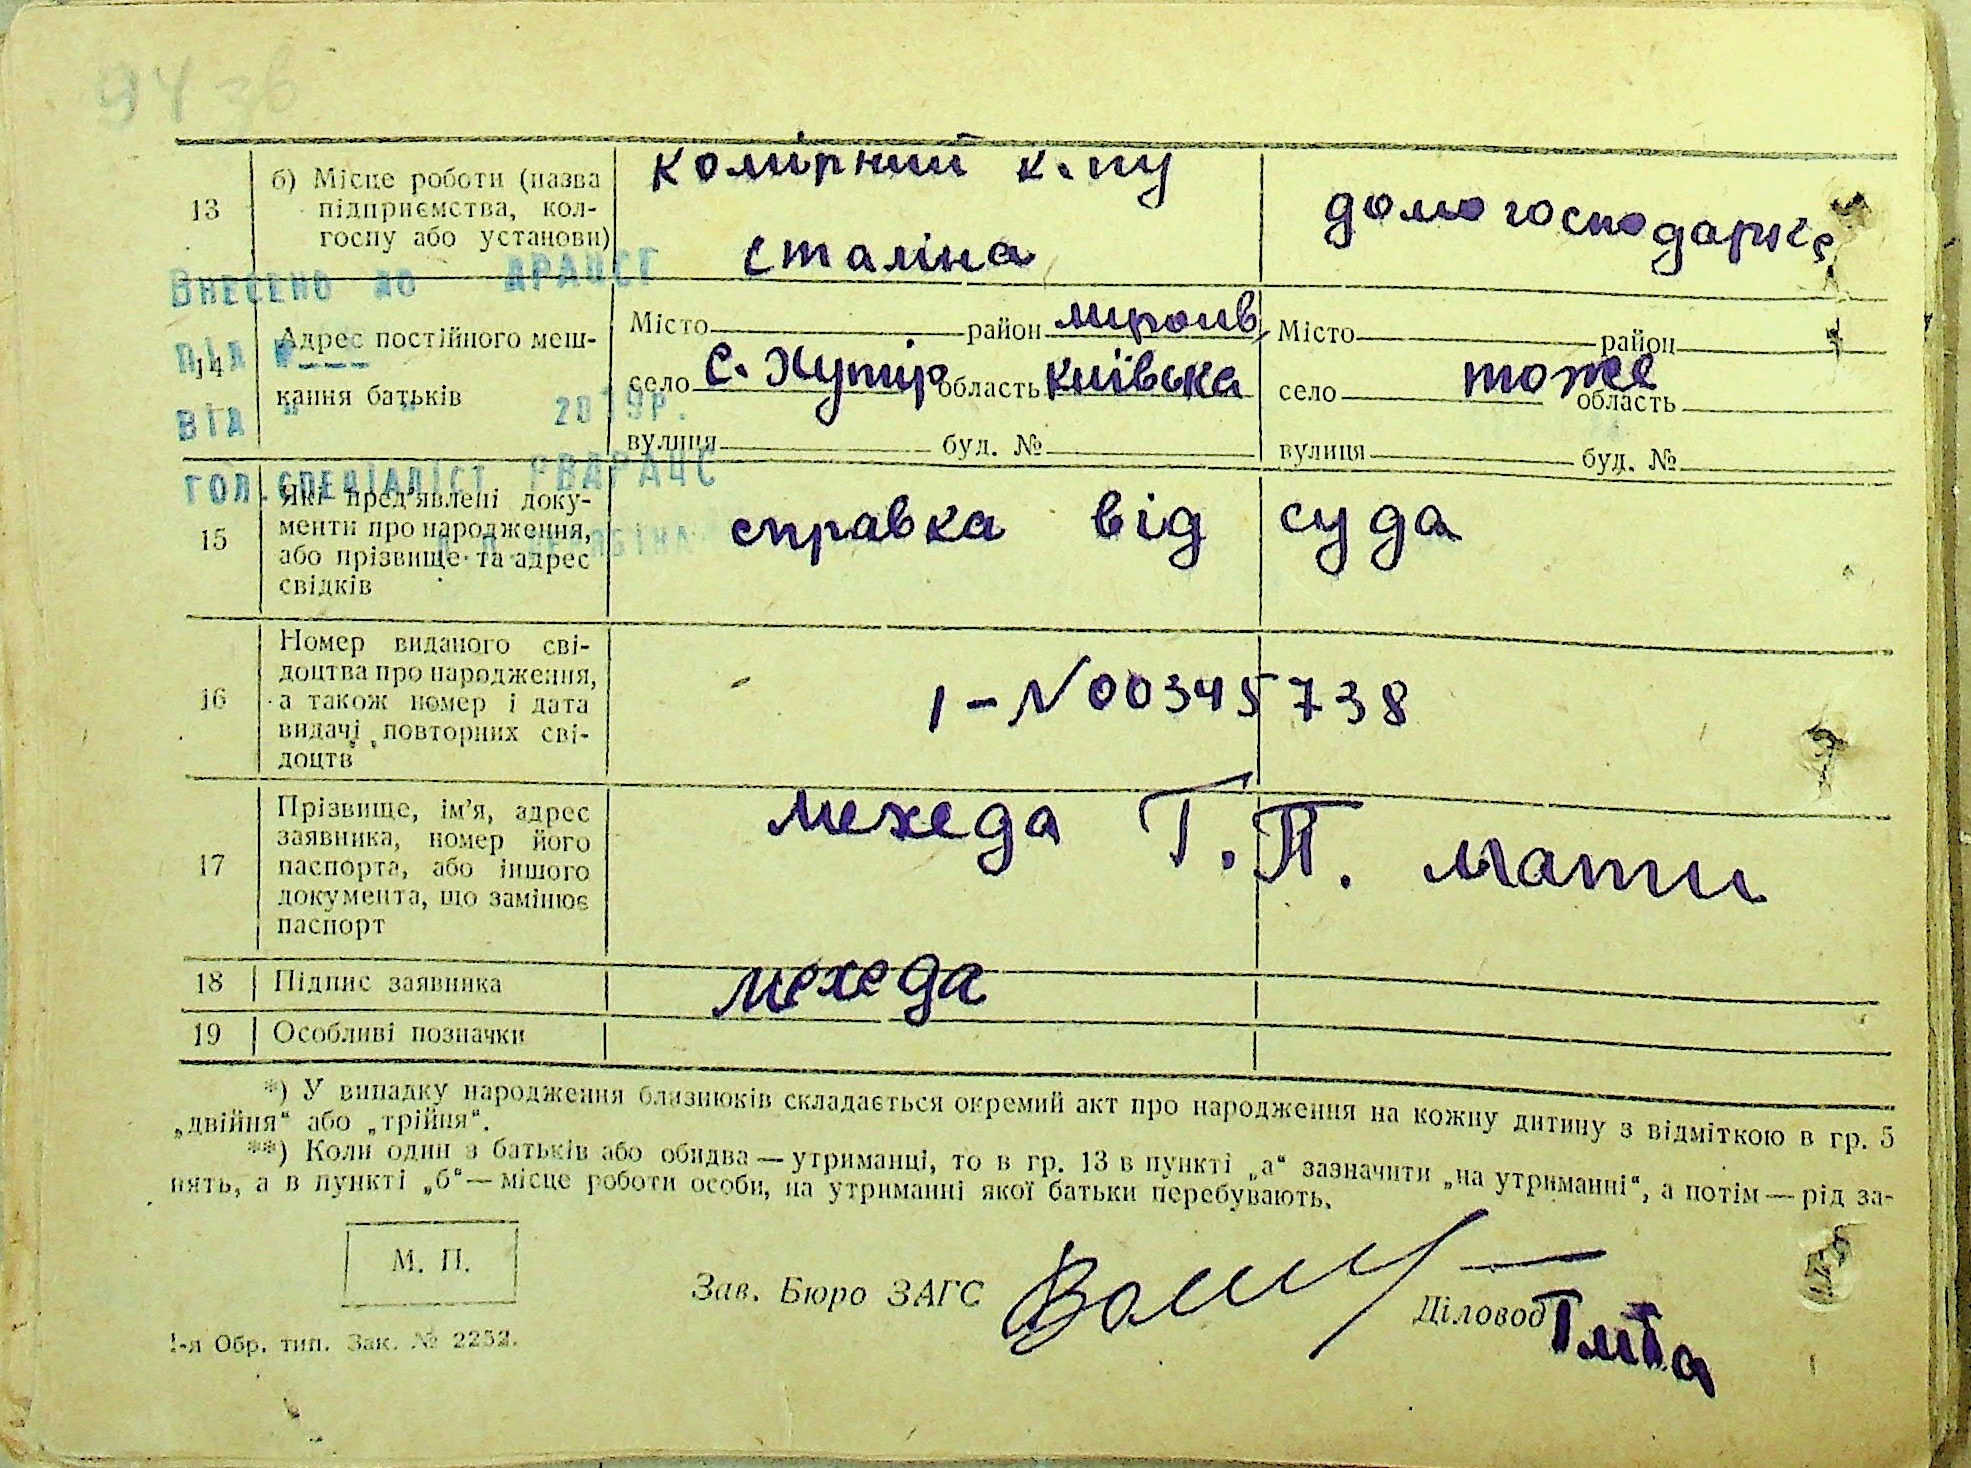 94 зв
13
б) Місце роботи (назва
підприємства, кол-
госпу або установи)
комірний к.пу
сталіна
домогосподарка
Внесено до ДРАЦСГ
під №
від " " 2019р.
гол.спеціаліст РВДРАЦС
14
Адрес постійного меш-
кання батьків
Місто район миронів
село с. Хутир область київська
вулиця буд. №
Місто район
село тоже область
вулиця буд. №
15
Які пред'явлені доку-
менти про народження,
або прізвище та адрес
свідків
справка від суда
16
Номер виданого сві-
доцтва про народження,
а також номер і дата
видачі повторних сві-
доцтв
1-N00345738
17
Прізвище, ім'я, адрес
заявника, номер його
паспорта, або іншого
документа, що замінює
паспорт
мехеда Г.П. мати
18 Підпис заявника
мехеда
19 Особливі позначки
*) У випадку народження близнюків складається окремий акт про народження на кожну дитину з відміткою в гр. 5
„двійня“ або „трійня“.
**) Коли один з батьків або обидва — утриманці, то в гр. 13 в пункті „а“ зазначити „на утриманні“, а потім — рід за-
нять, а в пункті „б“ — місце роботи особи, на утриманні якої батьки перебувають.
М. П.
Зав. Бюро ЗАГС
Діловод
1-я Обр. тип. Зак. № 2252.